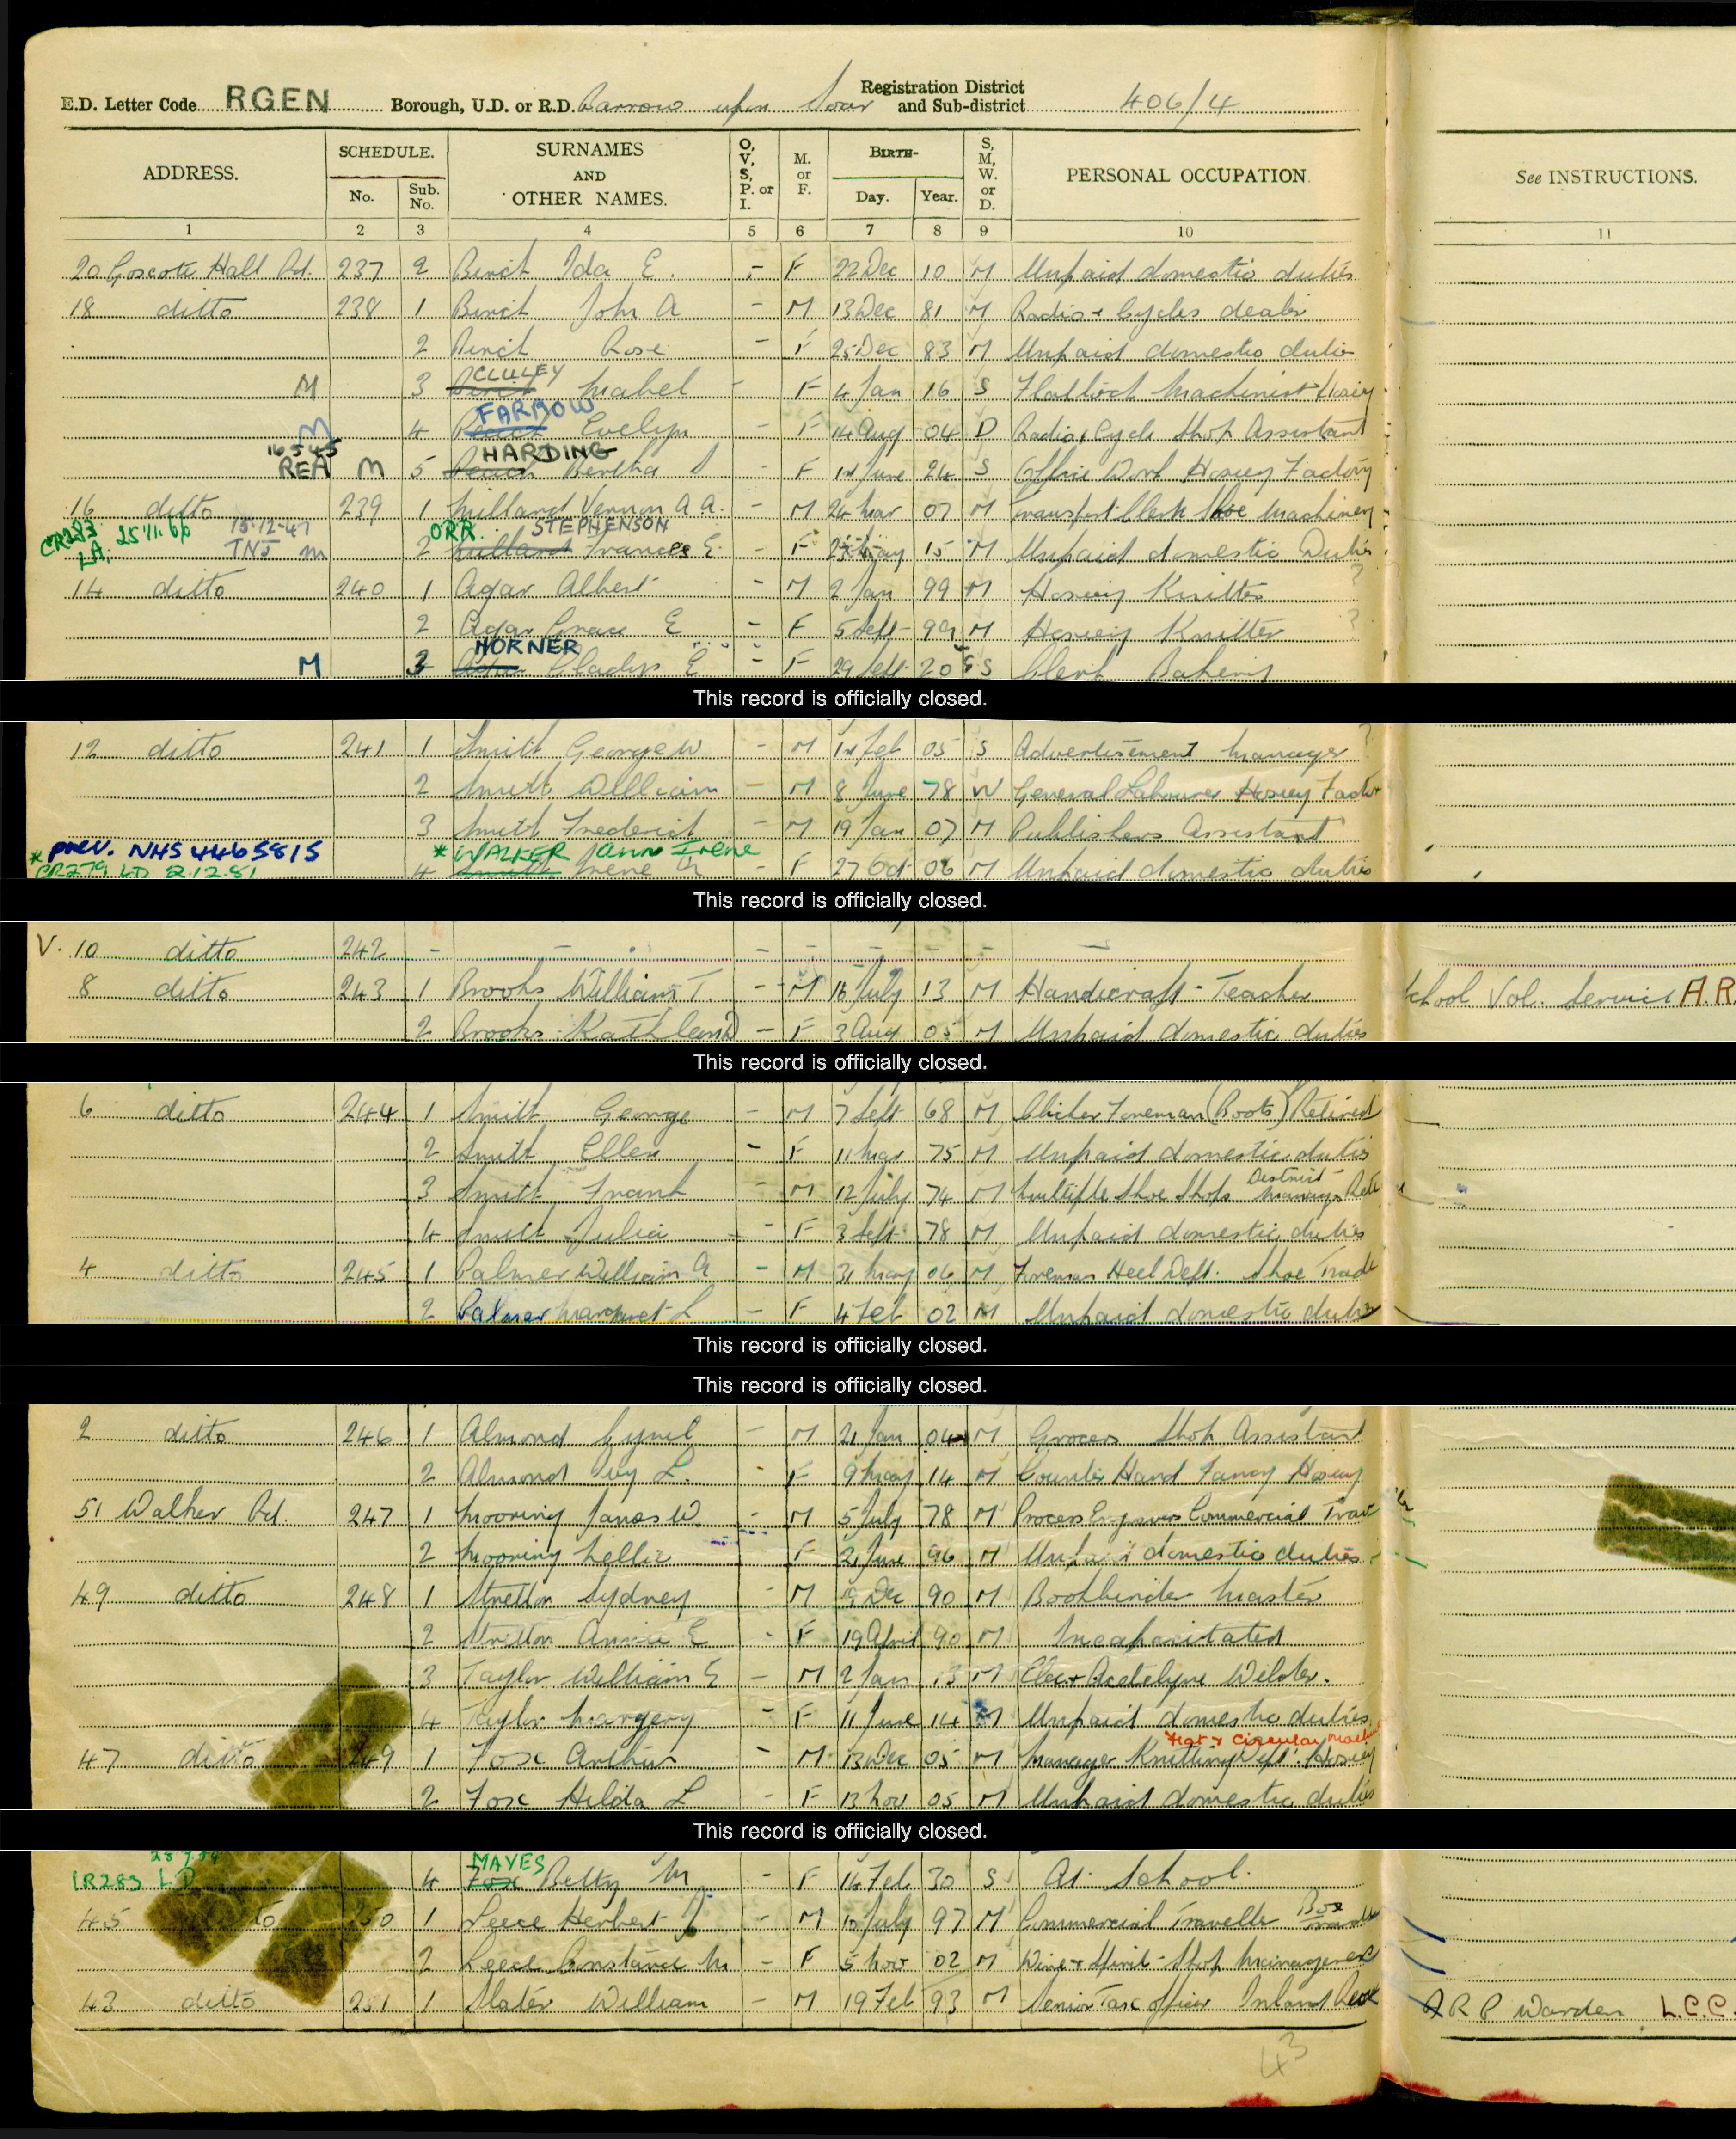 E.D. Letter Code RGEN Borough, U.D. or R.D. Barrow upon Soar Registration District and Sub-district 406/4
ADDRESS. SCHEDULE. No. Sub. No. SURNAMES AND OTHER NAMES. O, V, S, P. or I. M. or F. BIRTH- Day. Year. S, M, W. or D. PERSONAL OCCUPATION. See INSTRUCTIONS.
1 2 3 4 5 6 7 8 9 10 11
20 Goscote Hall Rd. 237 2 Ida E. - F 22 Dec 10 M Unpaid domestic duties
18 ditto 238 1 John A - M 13 Dec 81 M Radio & Cycles dealer
2 Rose - F 25 Dec 83 M Unpaid domestic duties
CLULEY
M 3 Mabel - F 4 Jan 16 S Flatlock Machinist
FARROW
M 4 Evelyn - F 14 Aug 04 D Radio & Cycle Shop Assistant
16-5-45 HARDING
REA M 5 Bertha - F June 24 S Office Work Hosiery Factory
16 ditto 239 1 Vernon A A. - M 24 Mar 07 M Transport Clerk Shoe Machinery
CR283 LA. 25.11.66 15-12-47 TNJ m ORR. STEPHENSON
2 Frances E. - F May 15 M Unpaid domestic Duties
14 ditto 240 1 Agar Albert - M 2 Jan 99 M Hosiery Knitter ?
2 Agar Grace E - F 5 Sept 99 M Hosiery Knitter ?
HORNER
M 3 Gladys E - F 29 Sept 20 S Clerk Bakery
This record is officially closed.
12 ditto 241 1 Smith George W - M 1st Feb 05 S Advertisement Manager ?
2 Smith William - M 8 June 78 W General Labourer Hosiery Factory
3 Smith Frederick - M 19 Jan 07 M Publishers Assistant
* prev. NHS 4465815 * WALKER Ann Irene
CR279 LD 2.12.81 4 Smith Irene A - F 27 Oct 06 M Unpaid domestic duties
This record is officially closed.
V. 10 ditto 242 - - - - - - -
8 ditto 243 1 Brooks William T. - M 16 July 13 M Handicraft - Teacher School Vol. Service A.R
2 Brooks Kathleen D - F 3 Aug 05 M Unpaid domestic duties
This record is officially closed.
6 ditto 244 1 Smith George - M 7 Sept 68 M Clicker Foreman (Boots) Retired
2 Smith Ellen - F 11 Mar 75 M Unpaid domestic duties
3 Smith Frank - M 12 July 74 M Multiple Shoe Shops District Manager
4 Smith Julia - F 3 Sept 78 M Unpaid domestic duties
4 ditto 245 1 Palmer William A - M 31 May 06 M Foreman Heel Dept. Shoe Trade
2 Palmer Margaret L - F 4 Feb 02 M Unpaid domestic duties
This record is officially closed.
This record is officially closed.
2 ditto 246 1 Almond Cyril - M 21 Jan 04 M Grocers Shop Assistant
2 Almond Ivy L. - F 9 May 14 M Counter Hand Fancy Hosiery
51 Walker Rd. 247 1 Mooring James W. - M 5 July 78 M Process Engravers Commercial Trav
2 Mooring Nellie F 2 June 96 M Unpaid domestic duties
49 ditto 248 1 Stretton Sydney - M 9 Dec 90 M Bookbinder Master
2 Stretton Annie E - F 19 April 90 M Incapacitated
3 Taylor William E - M 2 Jan 13 M Elec & Acetelyne Welder.
4 Taylor Margery - F 11 June 14 M Unpaid domestic duties
Flat & Circular
47 ditto 249 1 Fox Arthur - M 13 Dec 05 M Manager Knitting Dept. Hosiery
2 Fox Hilda L - F 13 Nov 05 M Unpaid domestic duties
This record is officially closed.
MAYES
4 Fox Betty M - F 16 Feb 30 S At School.
45 250 1 Leece Herbert - M July 97 M Commercial Traveller
2 Leece Constance M - F 5 Nov 02 M Wine & Spirit Shop Manageress
43 ditto 251 1 Slater William - M 19 Feb 93 M Senior Tax officer Inland ARP Warden L.C.C.
43